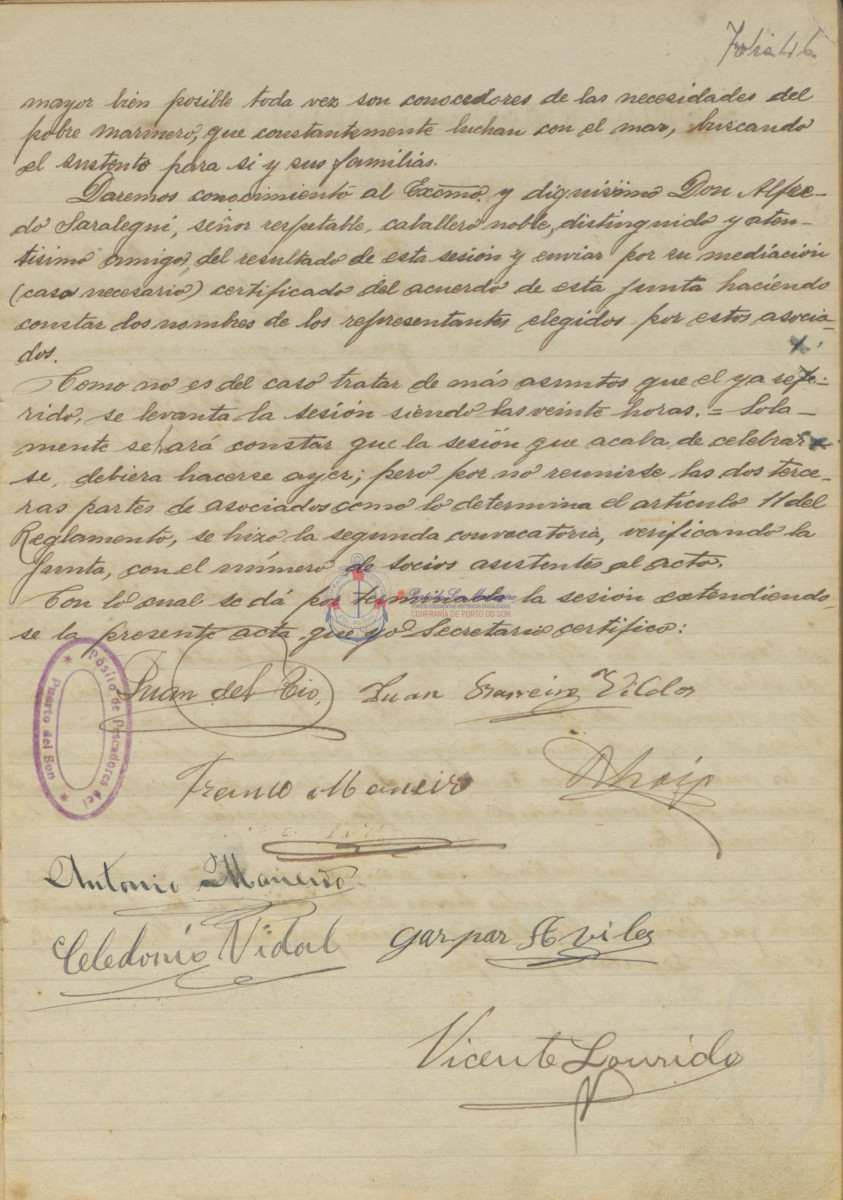 Folio 46
mayor bien posible toda vez son conocedores de las necesidades del
pobre marinero, que constantemente luchan con el mar, buscando
el sustento para si y sus familias.
Daremos conocimiento al Excmo. y dignisimo Don Alfre-
do Saralegui, señor respetable, caballero noble, distinguido y aten-
tisimo amigo, del resultado de esta sesión y enviar por su mediación
(caso necesario) certificado del acuerdo de esta Junta haciendo
constar los nombres de los representantes elegidos por estos asocia-
dos.
Como no es del caso tratar de más asuntos que el ya refe-
rido, se levanta la sesión siendo las veinte horas. = Sola-
mente se hará constar que la sesión que acaba de celebrar
se, debiera hacerse ayer; pero por no reunirse las dos terce-
ras partes de asociados como lo determina el artículo 11 del
Reglamento, se hizo la segunda convocatoria, verificando la
Junta, con el número de socios asistentes al acto.
Con lo cual se dá por terminada la sesión extendiendo
se la presente acta que yo Secretario certifico:
Pósito de Pescadores del
Puerto del Son
CONFRARIA DE PORTO DO SON
Juan del Rio, Juan
Franco Maneiro
Antonio Maneiro
Celedonio Vidal Gaspar Aviles
Vicente Lourido